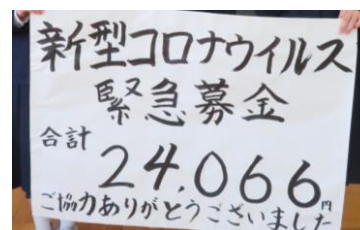 新型コロナウイルス
緊急募金
合計
24,066円
ご協力ありがとうございました